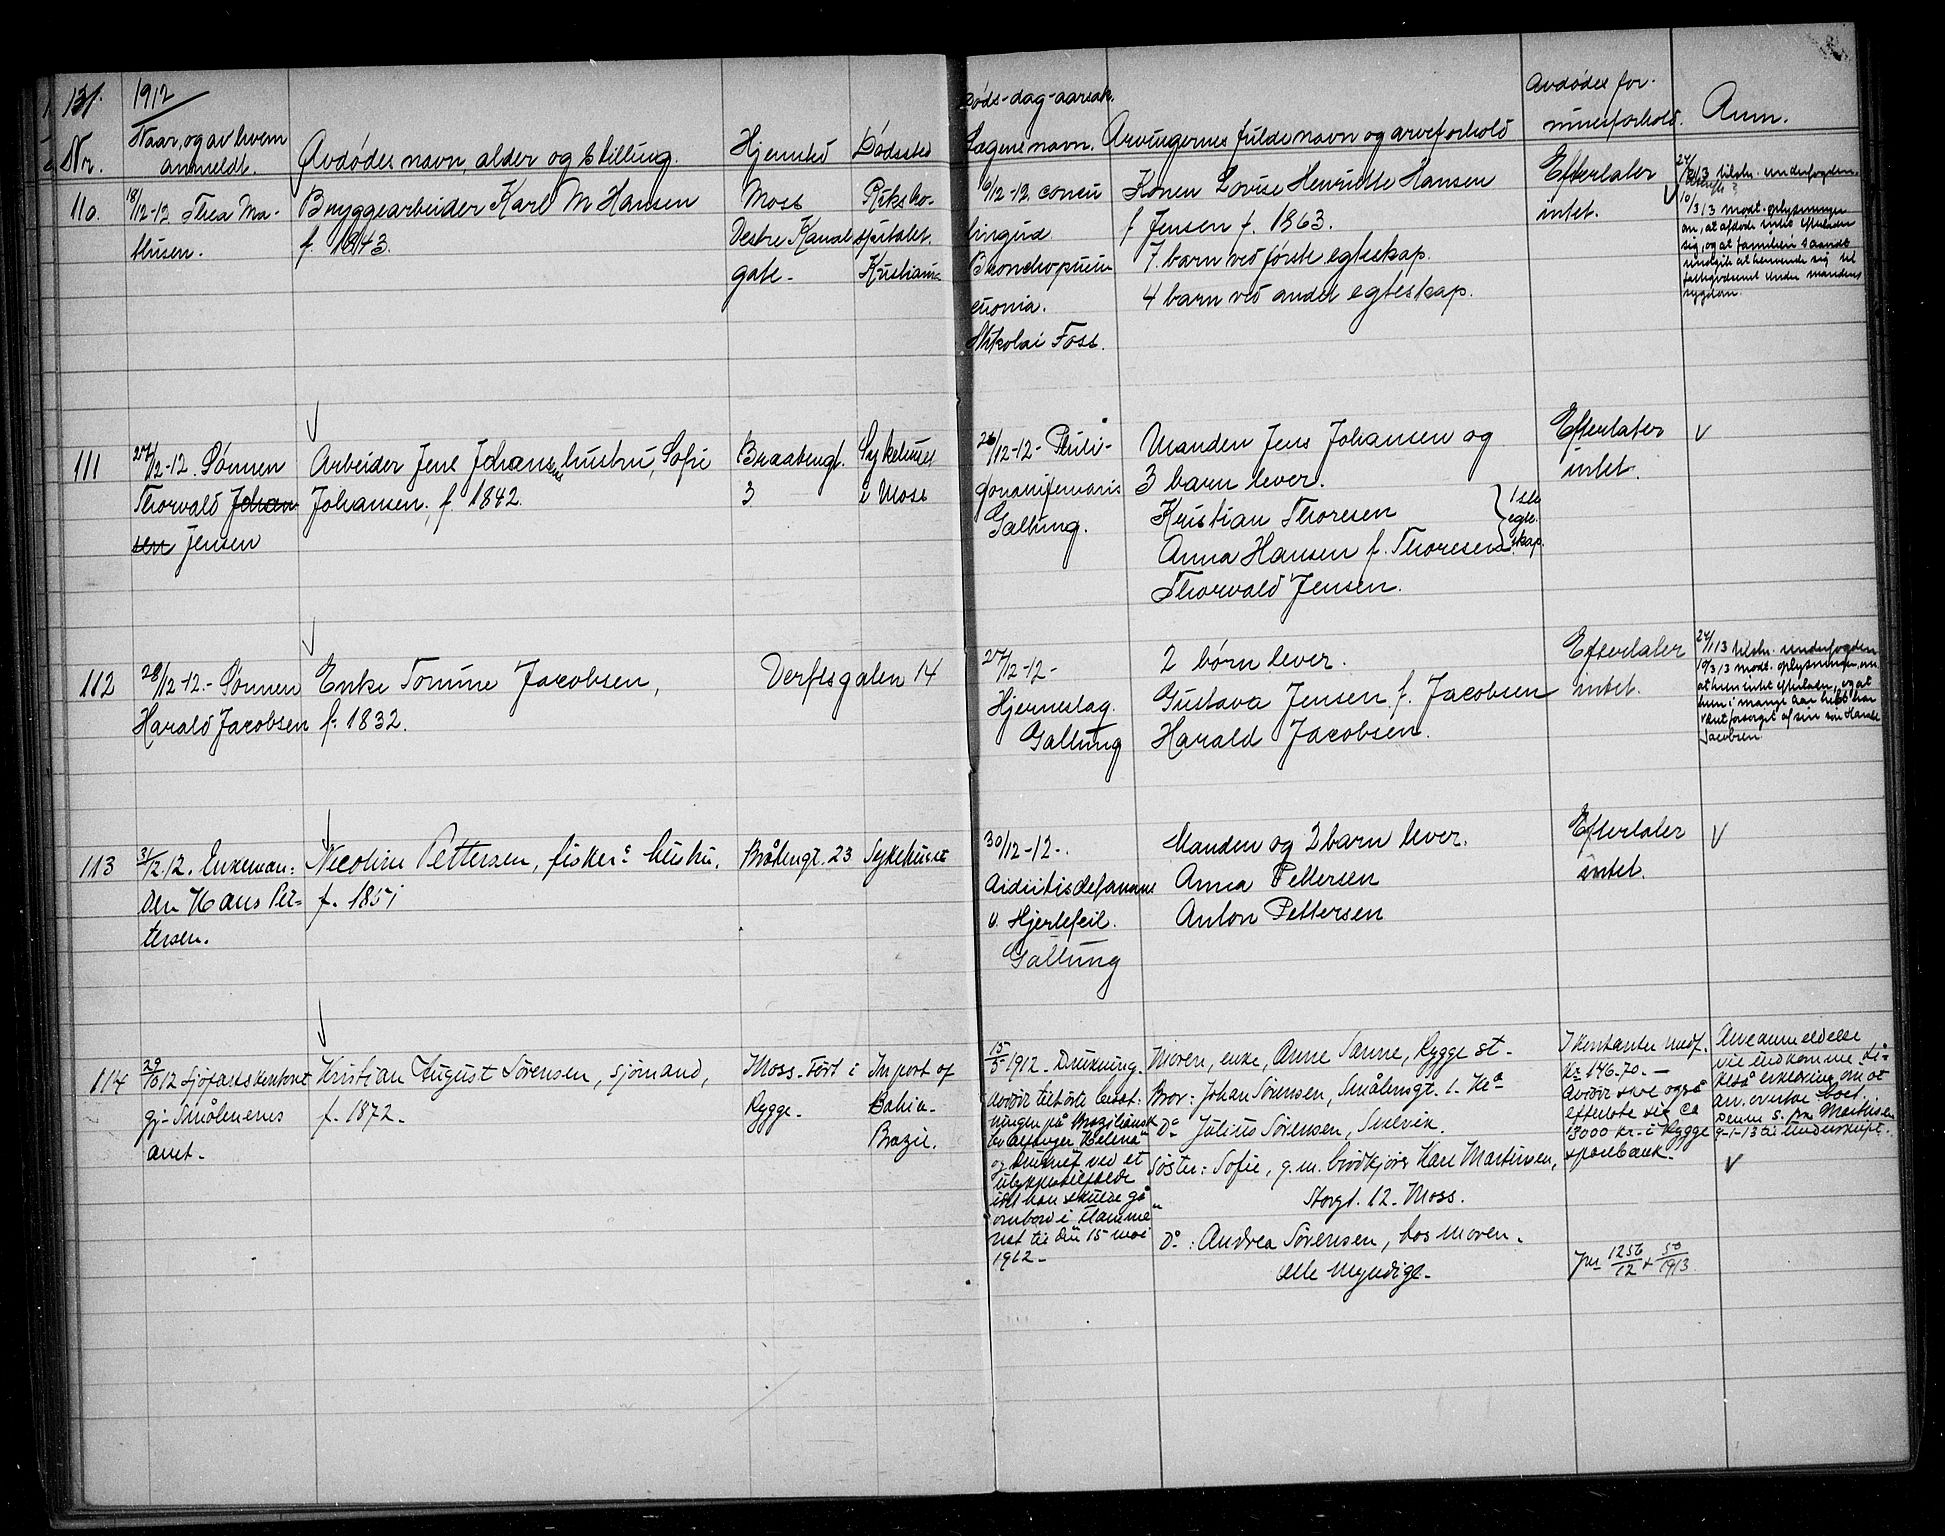 131.
1912
Nr.
Naar, og av hvem
anmeldt.
Avdødes navn, alder og stilling.
Hjemsted
Dødssted
Døds-dag-aarsak.
Lægens navn.
Arvingernes fulde navn og arveforhold
Avdødes for-
muesforhold.
Anm.
110.
18/12-12 Thea Ma-
thisen.
Bryggearbeider Karl M Hansen
f. 1843.
Moss
Vestre Kanal
gate.
Riksho-
spitalet.
Kristiania
16/12-12
Broncho pneu
monia.
Nikolai Foss.
Konen Lovise Henriette Hansen
f Jensen f. 1863.
7 barn ved første egteskap.
4 barn ved andet egteskap.
Efterlater
intet.
24/2 13 tilskr. underfogden.
10/3 13 modt. oplysninger
om, at afdøde intet efterlader
sig, og at familien
at henvende sig til
fattigvæsenet under mandens
sygdom.
111
27/12-12. Sønnen
Thorvald Johan
sen Jensen
Arbeider Jens Johansens hustru, Sofie
Johansen, f 1842.
Braatengt.
3
Sykehuset
i Moss
26/12-12-
Galtung.
Manden Jens Johansen og
3 barn lever.
Kristian Thoresen
Anna Hansen f. Thoresen
1ste
egte-
skap.
Thorvald Jensen.
Efterlater
intet.
112
28/12-12.- Sønnen
Harald Jacobsen
Enke Tomine Jacobsen,
f. 1832.
Verftsgaten 14
27/12-12-
Hjerneslag.
Galtung
2 børn lever.
Gustava Jensen f. Jacobsen
Harald Jacobsen.
Efterlater
intet.
24/1 13 tilskr. underfogden
10/3 13 modt. oplysninger om
at hun intet efterlader, og at
hun i mange aar
været forsørget af sin søn Harald
Jacobsen
113
31/12.12. Enkeman-
den Hans Pet-
tersen.
Nicoline Pettersen, fiskers hustru.
f. 1851
Bråtengt. 23
Sykehuset
30/12-12-.
Hjertefeil.
Galtung
Manden og 2 barn lever.
Anna Pettersen
Anton Pettersen
Efterlater
intet.
114
29/10 12 Sjøfartskontoret
gj. Smålenenes
amt.
Kristian August Sørensen, sjømand,
f. 1872.
Moss. Født i
Rygge.
In port of
Bahia.
Brazil.
15/5 1912. Drukning.
Avdøde tilhørte besæt-
ningen på Braziliansk
"Helena"
og druknet ved et
ulykkestilfælde
idet han skulde gå
ombord i
nat til den 15 mai
1912.
Moren, enke, Anne Sanne, Rygge st.
Bror: Johan Sørensen, Smålensgt. 1. Kra
Do Julius Sørensen, Svelvik.
Søster: Sofie, g.m. brødkjører Karl Martinsen,
Storgt. 12. Moss.
Do: Andrea Sørensen, hos moren.
Alle myndige.
I kontanter
kr 146.70.-
Avdøde skal også
efterlate sig ca
13000 kr. i Rygge
sparebank.
Jnr 1256/12 + 50/1913
Arveanmeldelse
vil indkomme li-
keså erklæring om at
arv. overtar boet.
Denne s. fra Martinsen
9-1-13 til underskrift.